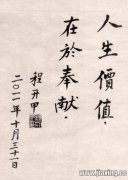 人生價值，
在於奉献．
程开甲
二〇一一年十月三十一日
www.jiaxing.cc